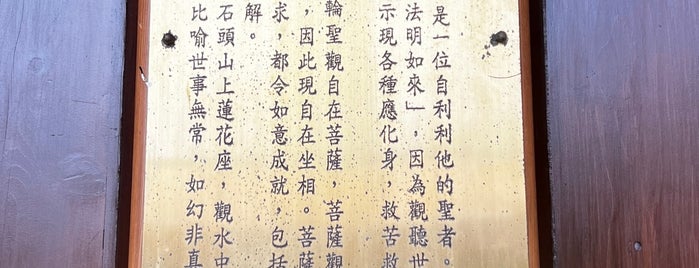 是一位自利利他的聖者。
法明如來」，因為觀聽世
示現各種應化身，救苦救
輪聖觀自在菩薩，菩薩觀
，因此現自在坐相。菩薩
求，都令如意成就，包括
解。
石頭山上蓮花座，觀水中
比喻世事無常，如幻非真